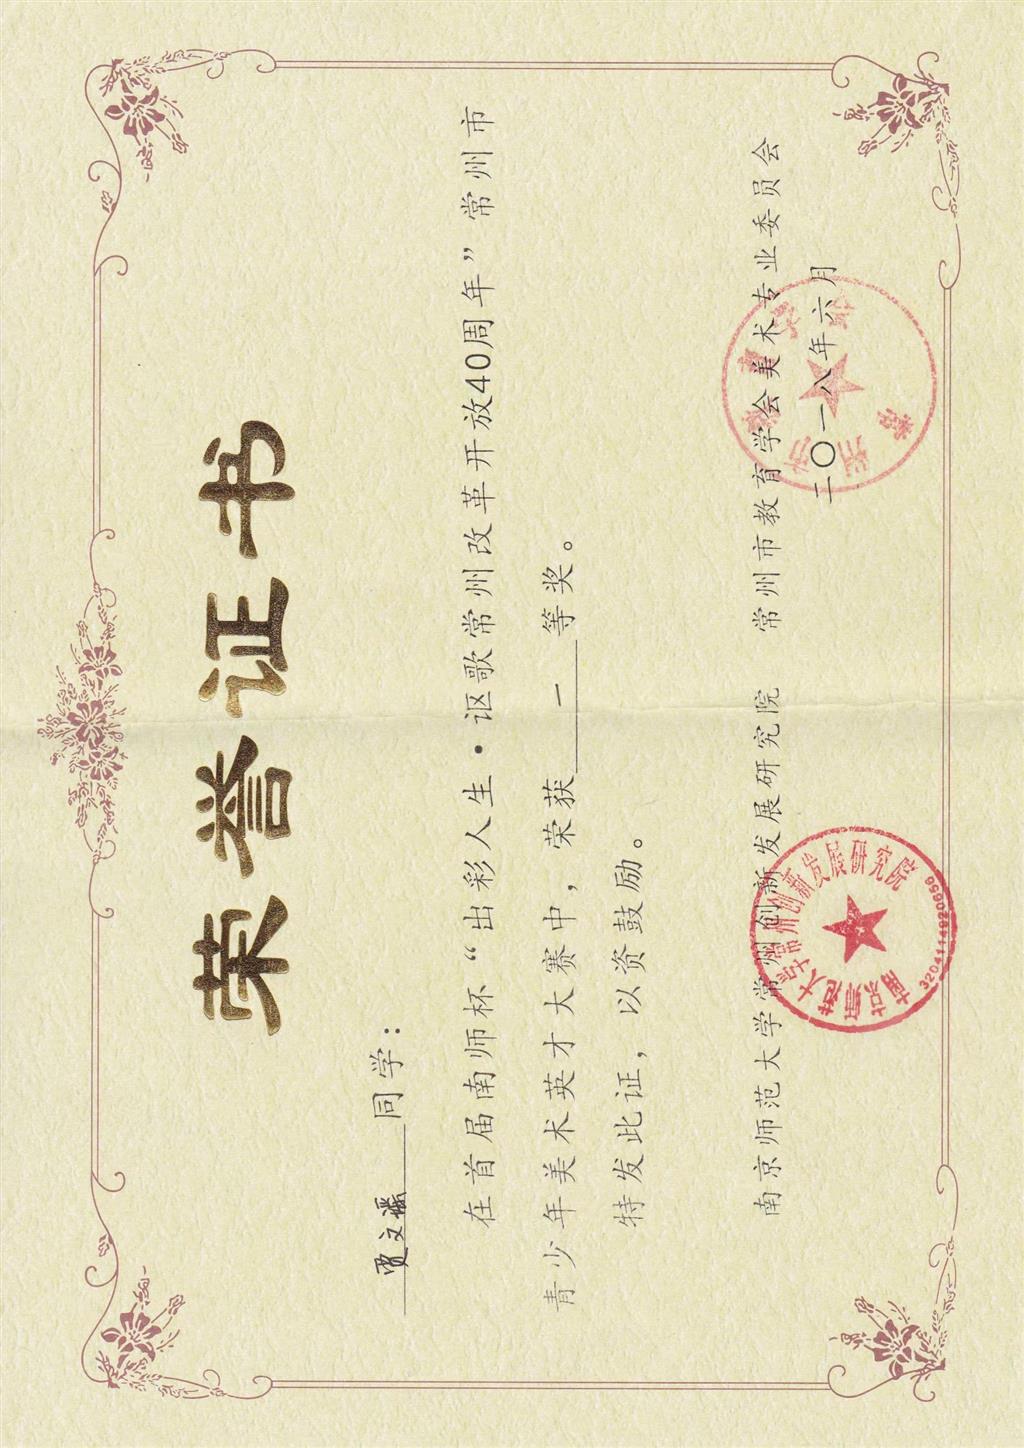 荣誉证书
贾文谣同学：
在首届南师杯“出彩人生·讴歌常州改革开放40周年”常州市
青少年美术英才大赛中，荣获一等奖。
特发此证，以资鼓励。
南京师范大学常州创新发展研究院 常州市教育学会美术专业委员会
二〇一八年六月
南京师范大学常州创新发展研究院
3204114920699